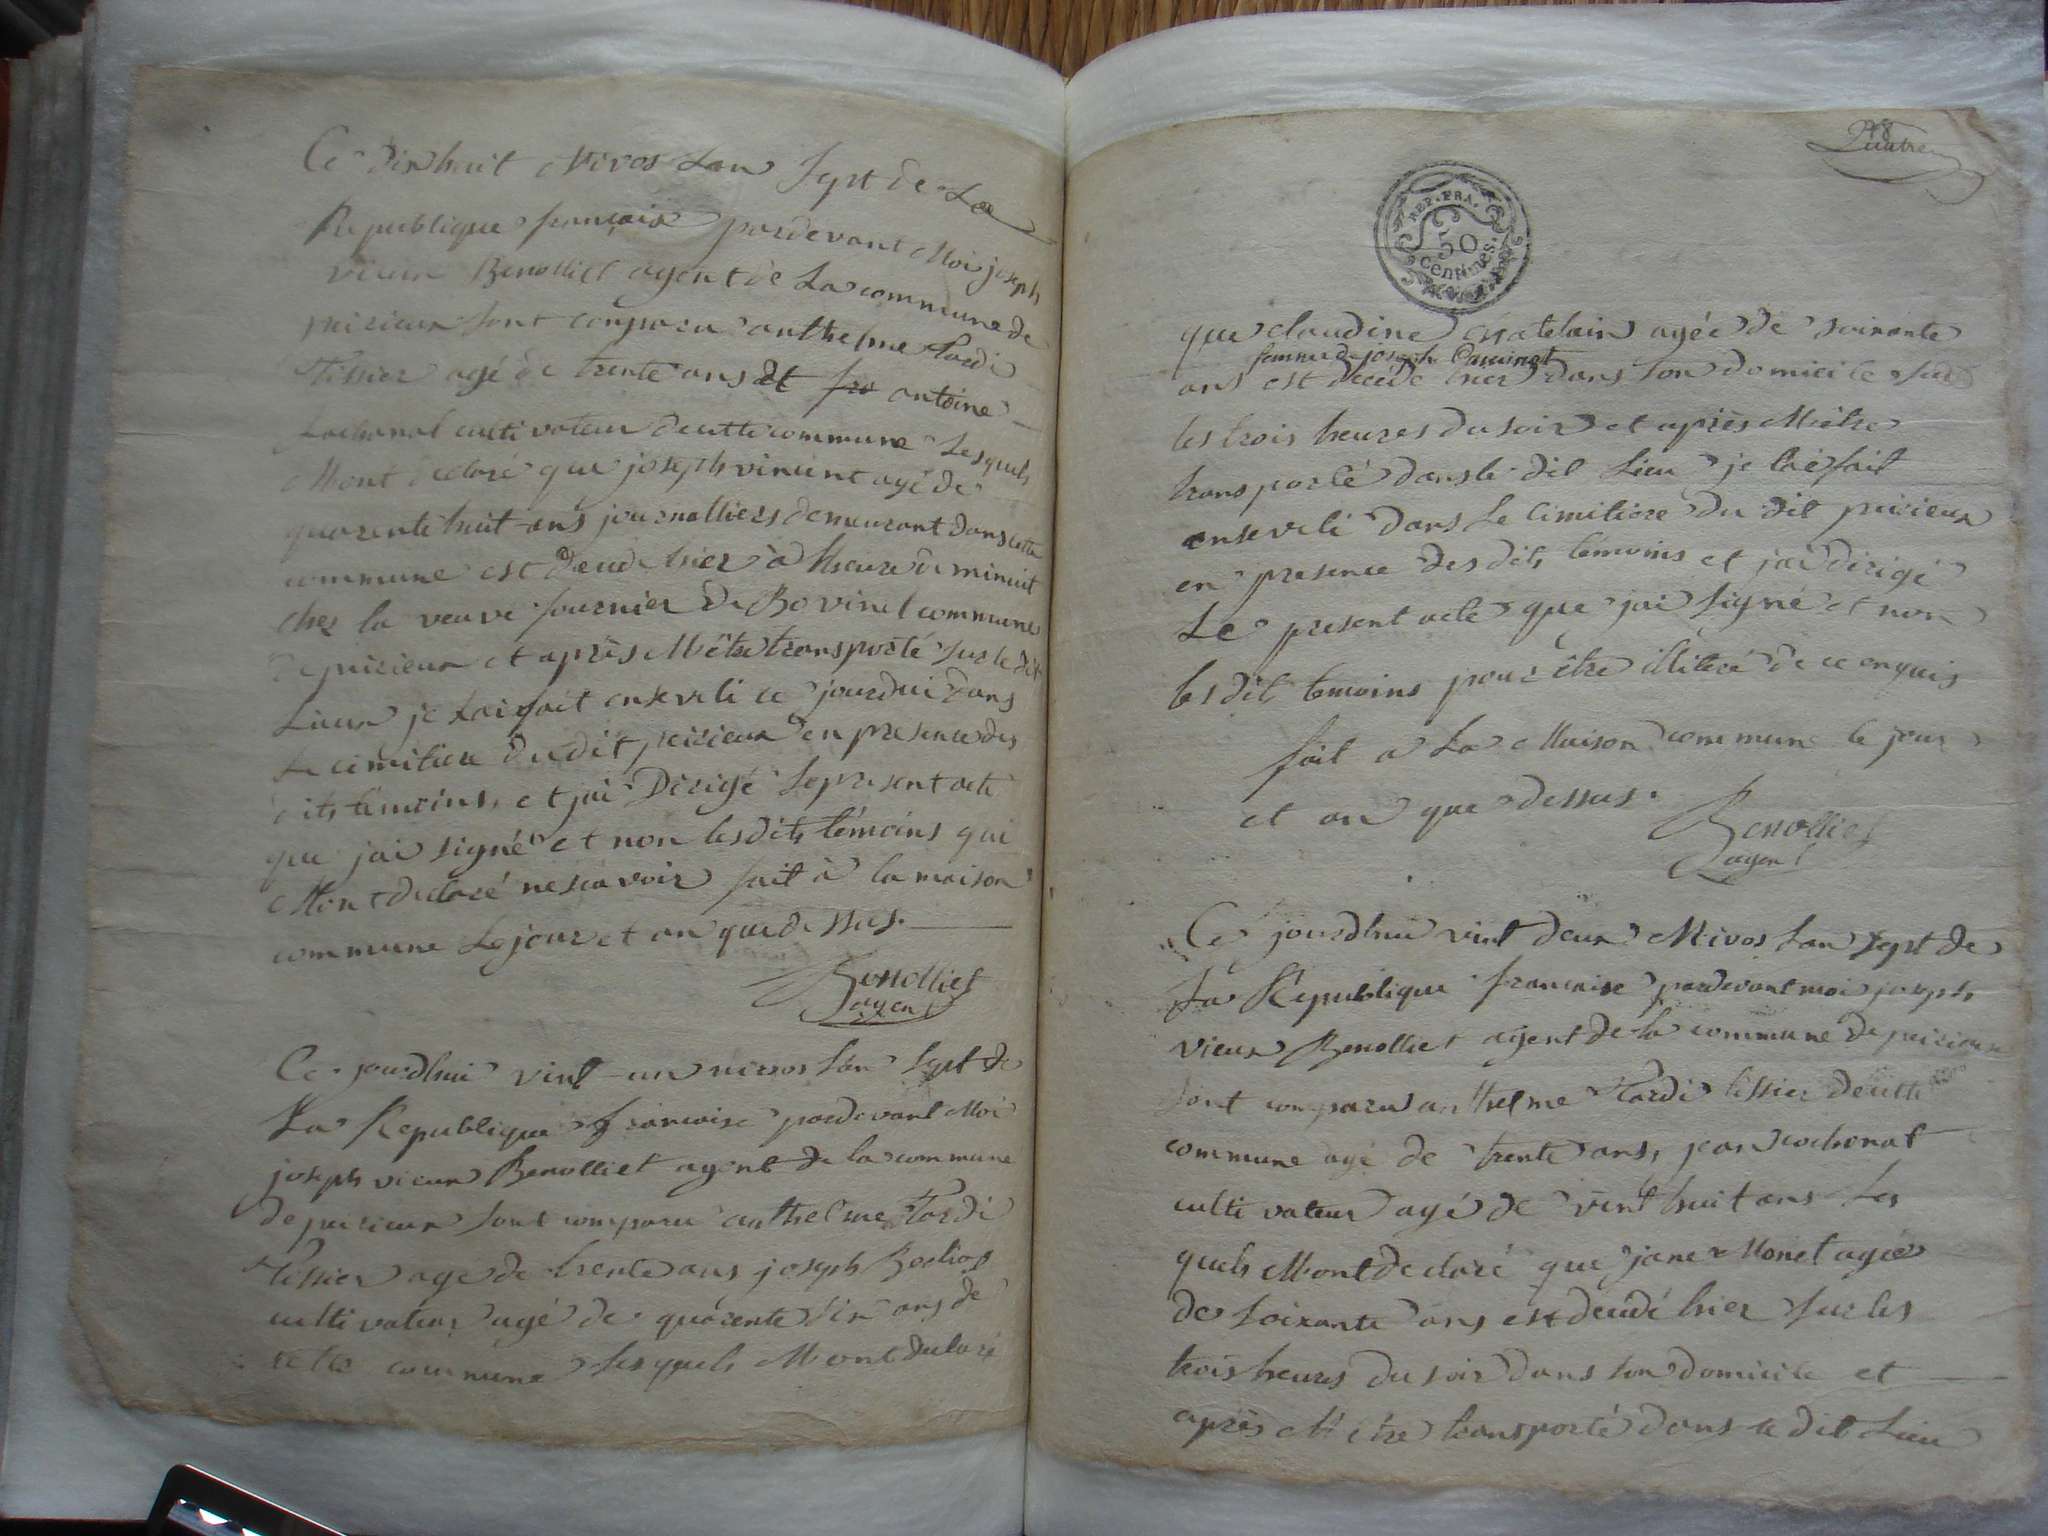 Ce dixhuit Nivos Lan Sept de La
Republique françaix pardevant Moi joseph
vieux Benolliet agent de La commune de
peizieux sont conparu anthelme tardi
Tissier agé de trente ans et antoine
cochonal cultivateur deutte commune Lesquels
Mont declaré que joseph vincent agé de
quarente huit ans journalliers demeurant dans cette
commune est decede hier à lheure de minuit
chez la veuve fournier de Bovinel commune
de peizieux et après Mêtre transporté sur le dit
Lieux je Lai fait enseveli ce jourdui dans
Le cimitiere du dit peizieux en presence des
dits témoins, et jai Dirigé Le present acte
que jai signé et non lesdits témoins qui
Mont declaré ne scavoir fait à la maison
commune Le jour et an que dessus.
Benolliet
agent
Ce jourdhui vint un nivos Lan Sept de
La Republique francaise pardevant Moi
joseph vieux Benolliet agent de la commune
de peizieux sont comparu anthelme Tardi
Tissier age de trente ans joseph
cultivateur agé de quarente dix ans de
cette commune Lesquels Mont declaré
Quatre
REP. FRA.
50
CENTIMES.
que claudine chatelain agée de soixante
femme de joseph
ans est decédé hier dans son domicile sur
les trois heures du soir et après Mêtre
transporté dans le dit Lieu je laé fait
enseveli dans Le cimitiere du dit peizieux
en presence des dits témoins et jai dirigé
Le present acte que jai signé et non
les dits temoins pour être illiteré de ce enquis
fait a La Maison commune le jour
et an que dessus.
Benolliet
agent
Ce jourdhui vint deux Nivos Lan Sept de
La Republique francaise pardevant moi joseph
vieux Benolliet agent de la commune de peizieux
sont comparu anthelme Tardi tissier deutte
commune agé de trente ans, jean cochonat
cultivateur agé de vint huit ans Les
quels Mont declaré que jane Monet agée
de Soixante ans est decédé hier sur les
trois heures du soir dans son domicile et
après Mêtre transporté dans le dit Lieu